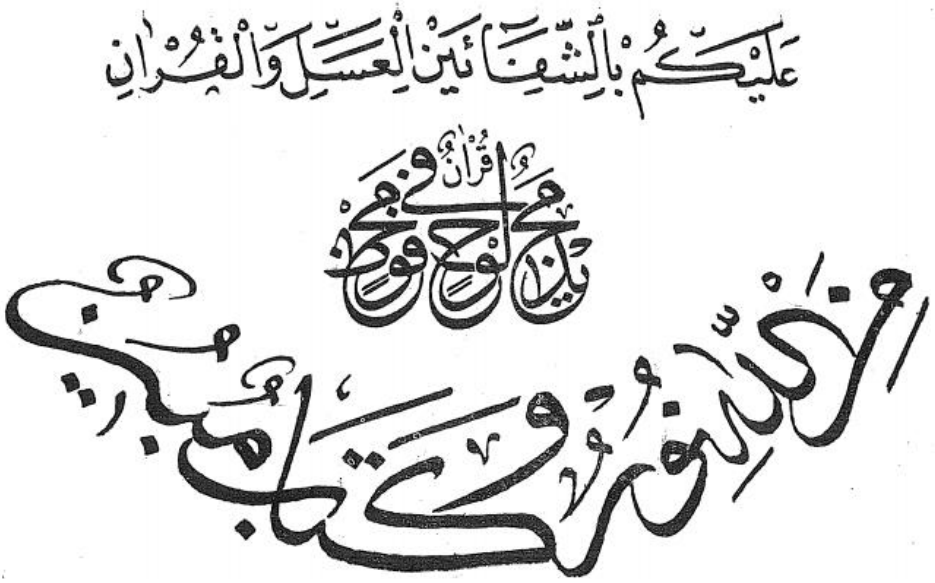 عَلَيْكُمْ بِالشِّفَائَيْنِ الْعَسَلِ وَالْقُرْانِ
قُرْاٰنٌ مَجِيْدٌ فِي لَوْحٍ مَحْفُوْظٍ
مِنَ اللهِ نُوْرٌ وَكِتَابٌ مُبِيْنٌ